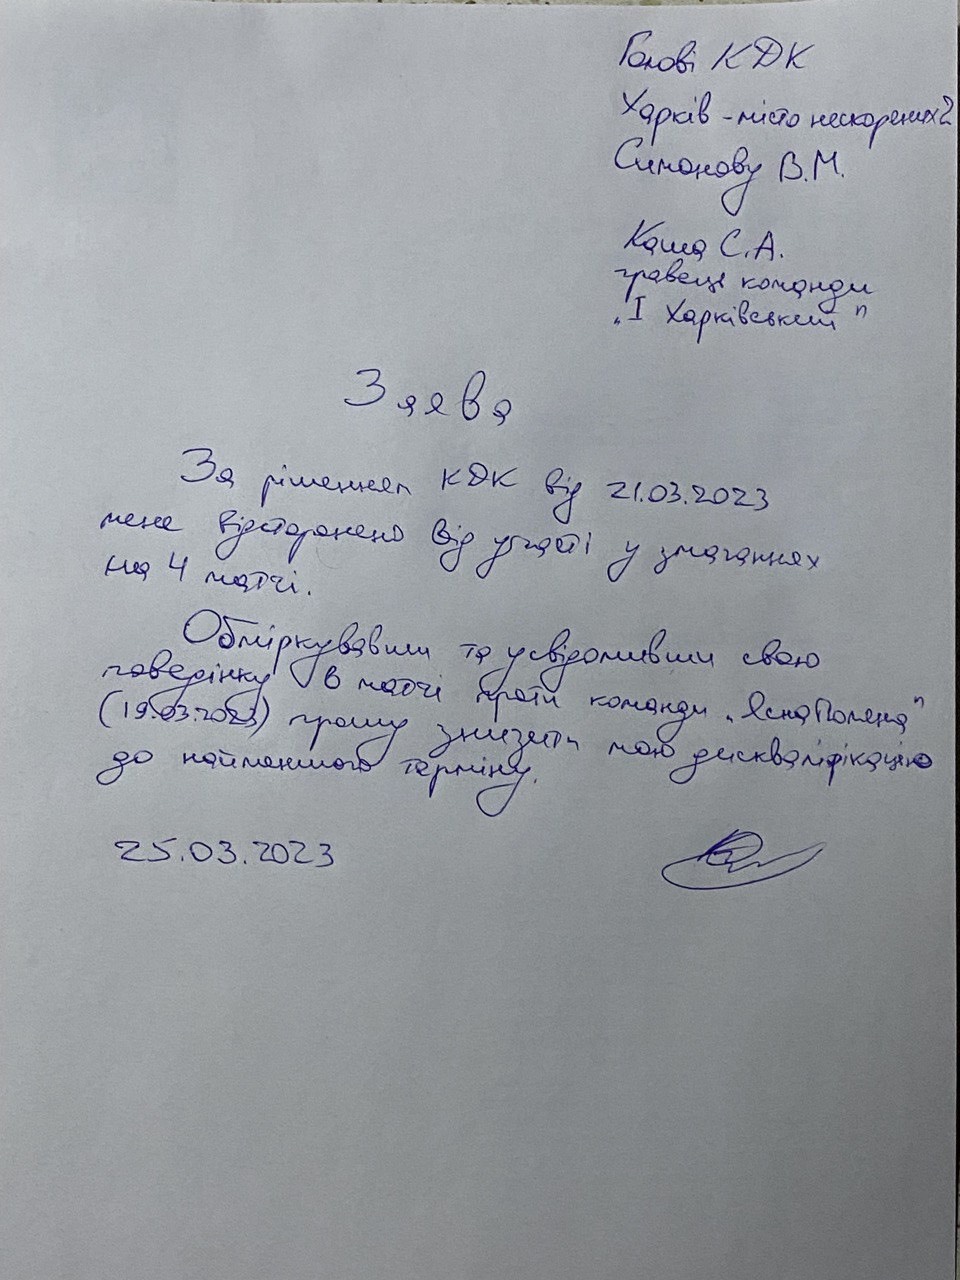 Голові КДК
Харків - місто нескорених 2
Симонову В.М.
Каша С.А.
гравець команди
„І Харківський"
Заява
За рішенням КДК від 21.03.2023
мене відсторонено від участі у змаганнях
на 4 матчі.
Обміркувавши та усвідомивши свою
поведінку в матчі проти команди „Ясна Поляна"
(19.03.2023) прошу знизити мою дискваліфікацію
до найменшого терміну.
25.03.2023